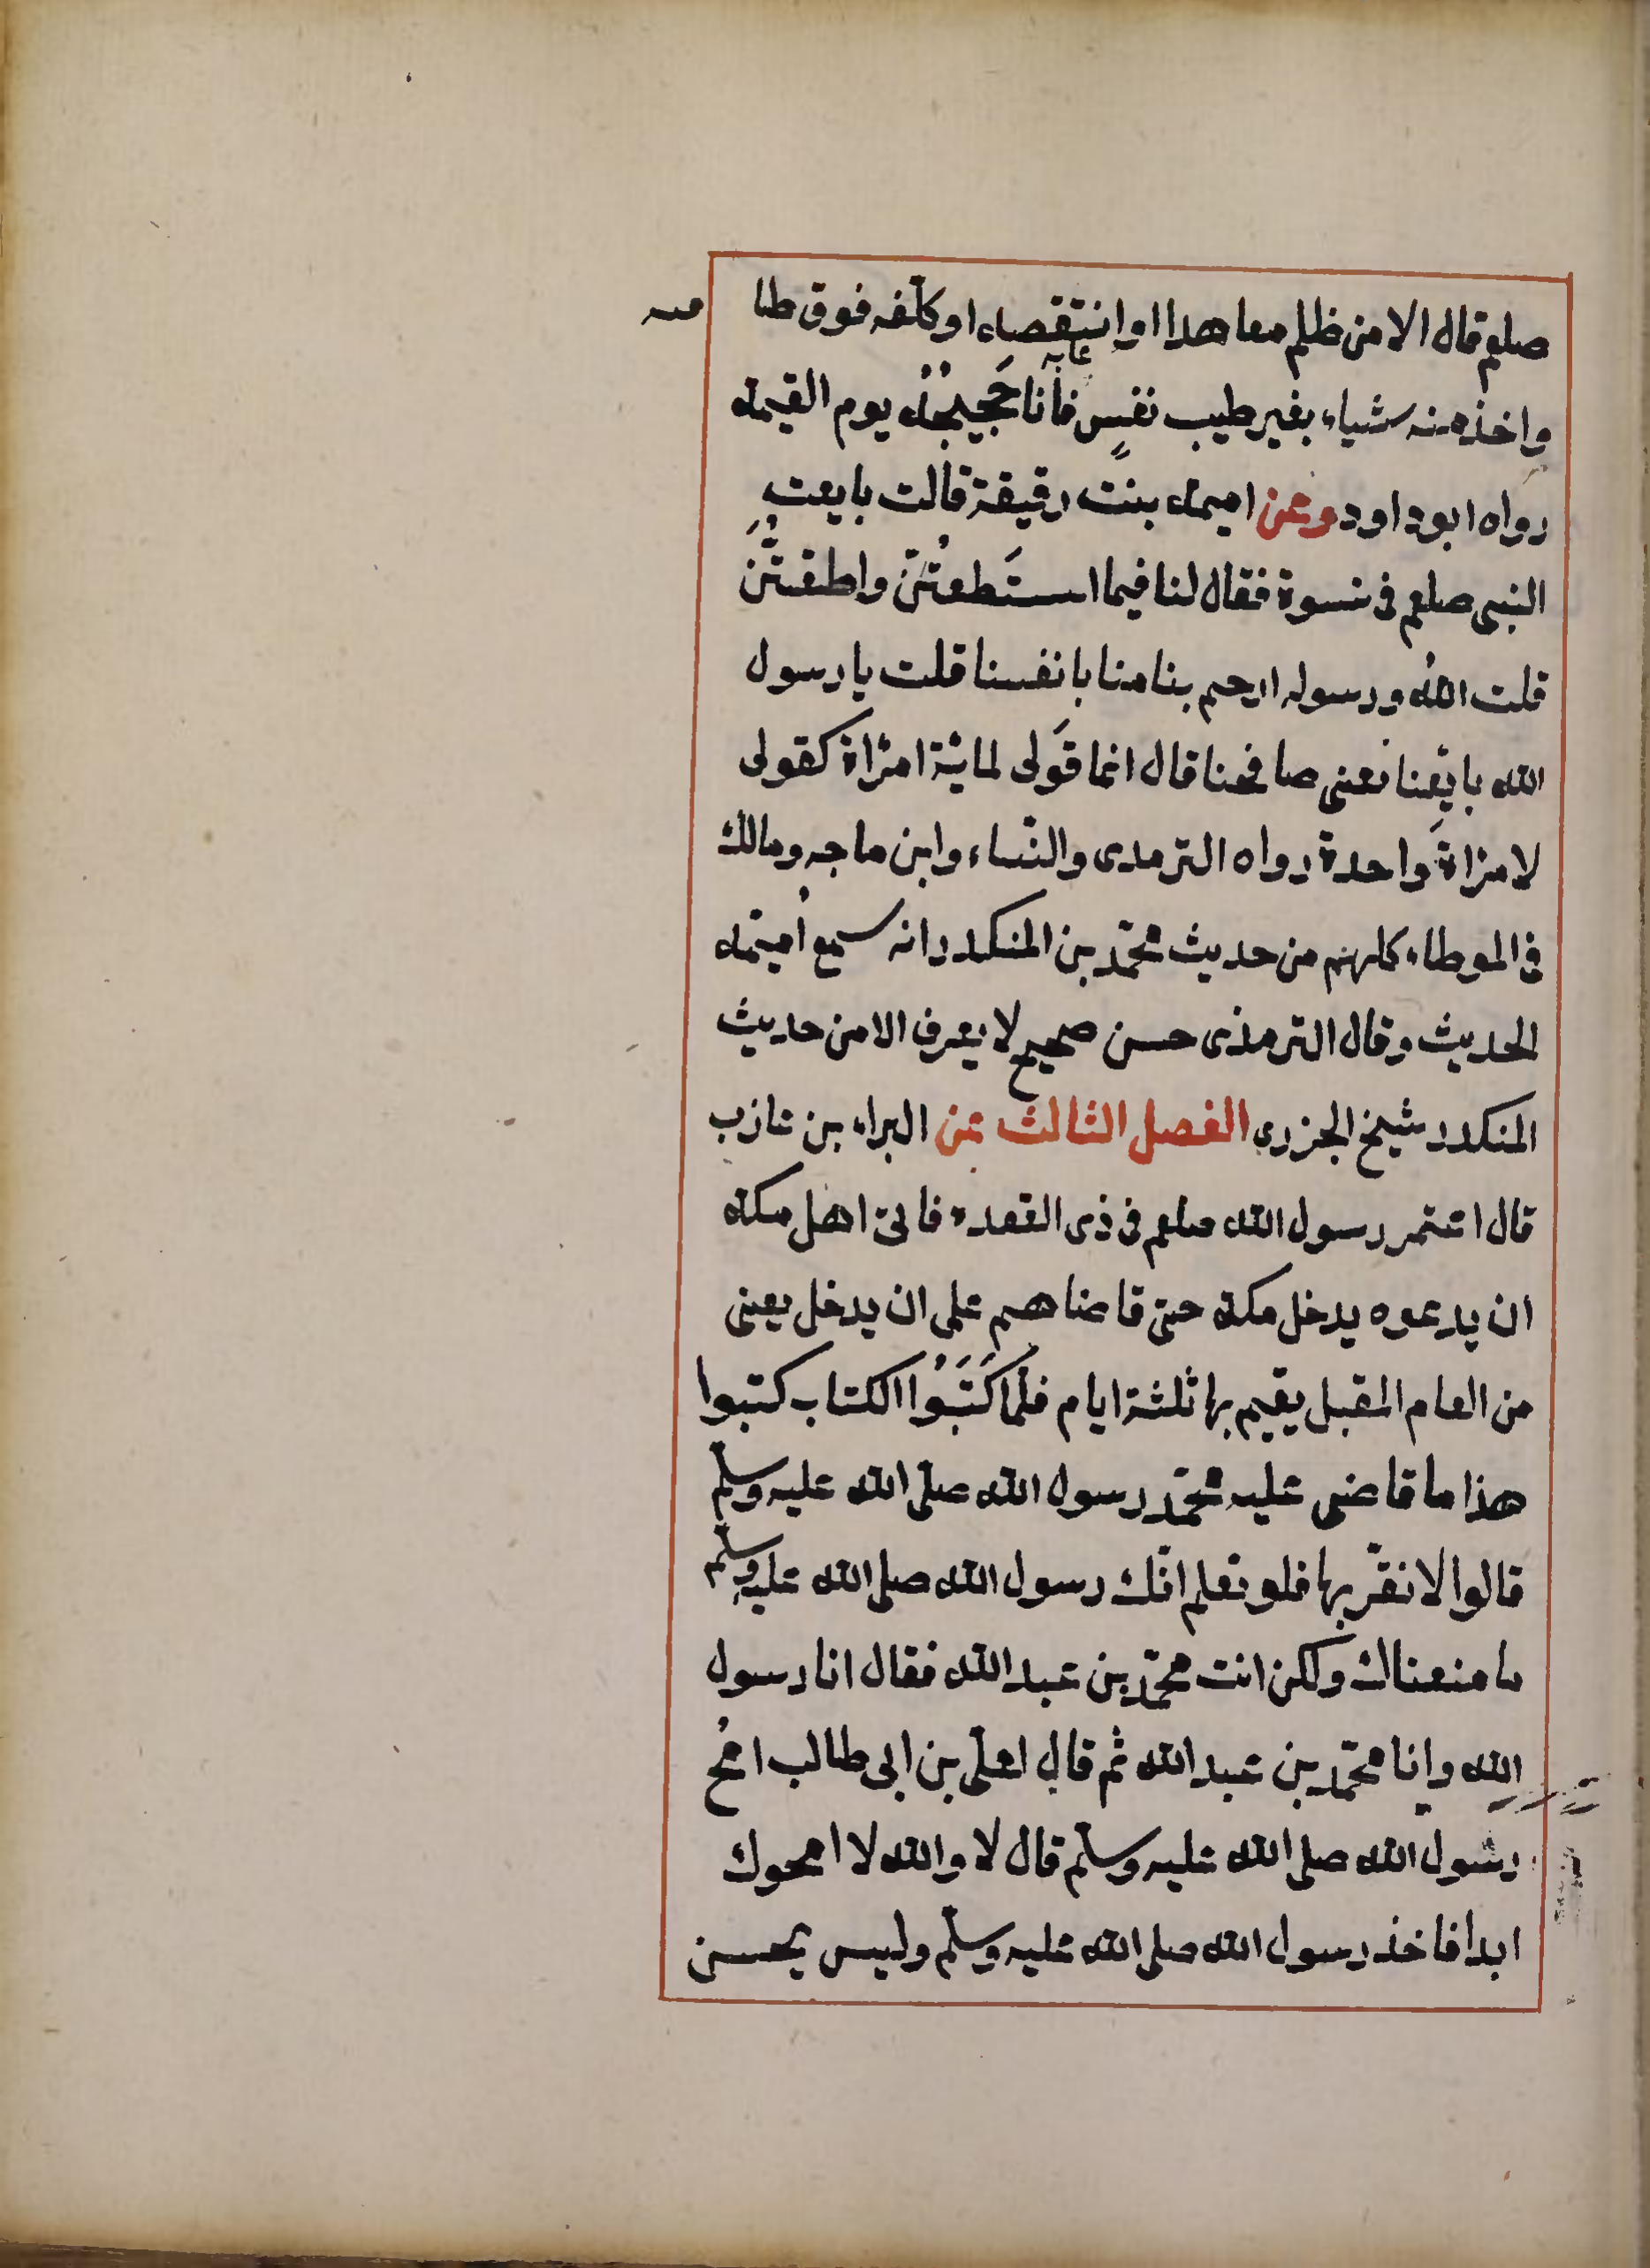 صلعم قال الا من ظلم معاهدا او انتقصاء او كلّفه فوق طا قته
واخذه منه شياء بغير طيب نفسٍ فأنا حَجيجُهُ يوم القيمة
رواه ابو داود وعن اميمة بنت رقيقة قالت بايعت
النبى صلعم فى نسوة فقال لنا فيما استَطعتُنّ واطقتُنّ
قلت اللهُ ورسوله ارحم بنا منا بانفسنا قلت يا رسول
الله بايِعنا نعنى صافحنا قال انما قَولى لمائة امرأة كقولى
لامرأة واحدة رواه الترمدى والنّساء وابن ماجه ومالك
فى الموطاء كلهم من حديث محمّد بن المنكدر انه سمع أميمة
الحديث وقال الترمذى حسن صحيح لا يعرف الا من حديث
المنكدر شيخ الجزرى الفصل الثالث عن البراء بن عازب
قال اعتمر رسول الله صلعم فى ذى القعدة فابى اهل مكة
ان يدعوه يدخل مكة حتى قاضاهم على ان يدخل يعنى
من العام المقبل يقيم بها ثلثة ايام فلمّا كَتَبُوا الكتاب كتبوا
هذا ما قاضى عليه محمّد رسول الله صلّى الله عليه وسلّم
قالوا لا نقرّ بها فلو نعلم انّك رسول الله صلى الله عليه وسلم
ما منعناك ولكن انت محمّد بن عبد الله فقال انا رسول
الله وانا محمّد بن عبد الله ثم قال لعلى بن ابى طالب امحُ
رسول الله صلى الله عليه وسلّم قال لا والله لا امحوك
ابدا فاخذ رسول الله صلى الله عليه وسلّم وليس يحسن